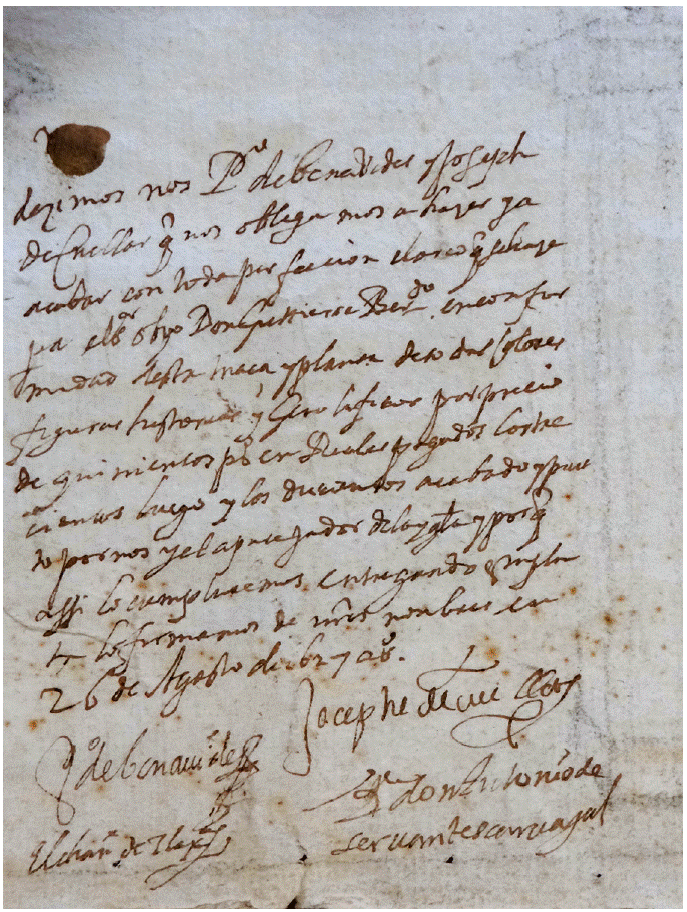 dezimos nos P.º de benabides y Joseph
de Cuellar q nos obligamos a hazer y a
acabar con toda perfecion el arco q se haze
pa el sr obpo Don Gutierre Berdo en confor
midad desta traca y planta de todas colores
figuras historias y Gero lificos por precio
de quinientos pos en Reales pagados los tre
cientos luego y los ducientos acabado y pues
to por nos y el aparejador de la ygla y porq
assi lo cumpliremos entregando
lo firmamos de nros nombres en
26 de Agosto de 627 as.
Josephe de Cuellar
Po de benavides
don Antonio de
servantes carvagal